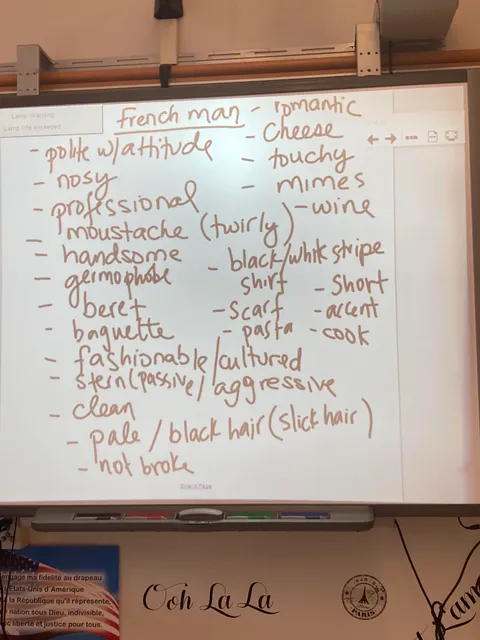 Lamp Warning
Lamp life exceeded
French man
- polite w/attitude
- nosy
- professional
- moustache (twirly)
- handsome
- germophobe
- beret
- baguette
- fashionable/cultured
- stern (passive/aggressive
- clean
- pale / black hair (slick hair)
- not broke
- romantic
- cheese
- touchy
- mimes
- wine
- black/white stripe
shirt
- scarf
- pasta
- short
- accent
- cook
ma fidélité au drapeau
États-Unis d'Amérique
la République qu'il représente,
nation sous Dieu, indivisible,
liberté et justice pour tous.
Ooh La La
PARIS